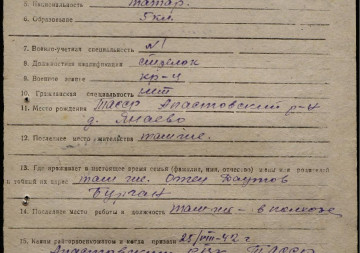 5. Национальность татар.
6. Образование 5 кл.
7. Военно-учетная специальность №1
8. Должностная квалификация стрелок
9. Военное звание кр-ц
10. Гражданская специальность нет
11. Место рождения Тасср Апастовский р-н
д. Янаево
12. Постоянное место жительства там же.
13. Где проживает в настоящее время семья (фамилия, имя, отчество) жены или родителей
и точный их адрес там же. Отец Даутов
Бурган
14. Последнее место работы и должность там же - в колхозе
15. Каким райгорвоенкоматом и когда призван 25/VIII-42 г.
Апастовский РВК ТАССР